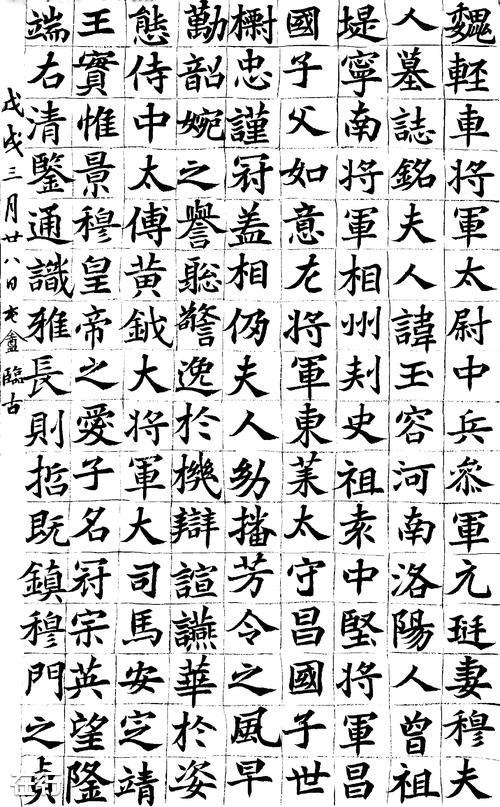 魏輕車將軍太尉中兵參軍元珽妻穆夫
人墓誌銘夫人諱玉容河南洛陽人曾祖
堤寧南將軍相州刾史祖袁中堅將軍昌
國子父如意左將軍東萊太守昌國子世
樹忠謹冠盖相仍夫人幼播芳令之風早
勤韶婉之譽聡警逸於機辯諠讌華於姿
態侍中太傅黄鉞大將軍大司馬安定靖
王實惟景穆皇帝之愛子名冠宗英望隆
端右清鑒通識雅長則哲既鎮穆門之貞
戊戌三月廿八日 盦臨古
在行